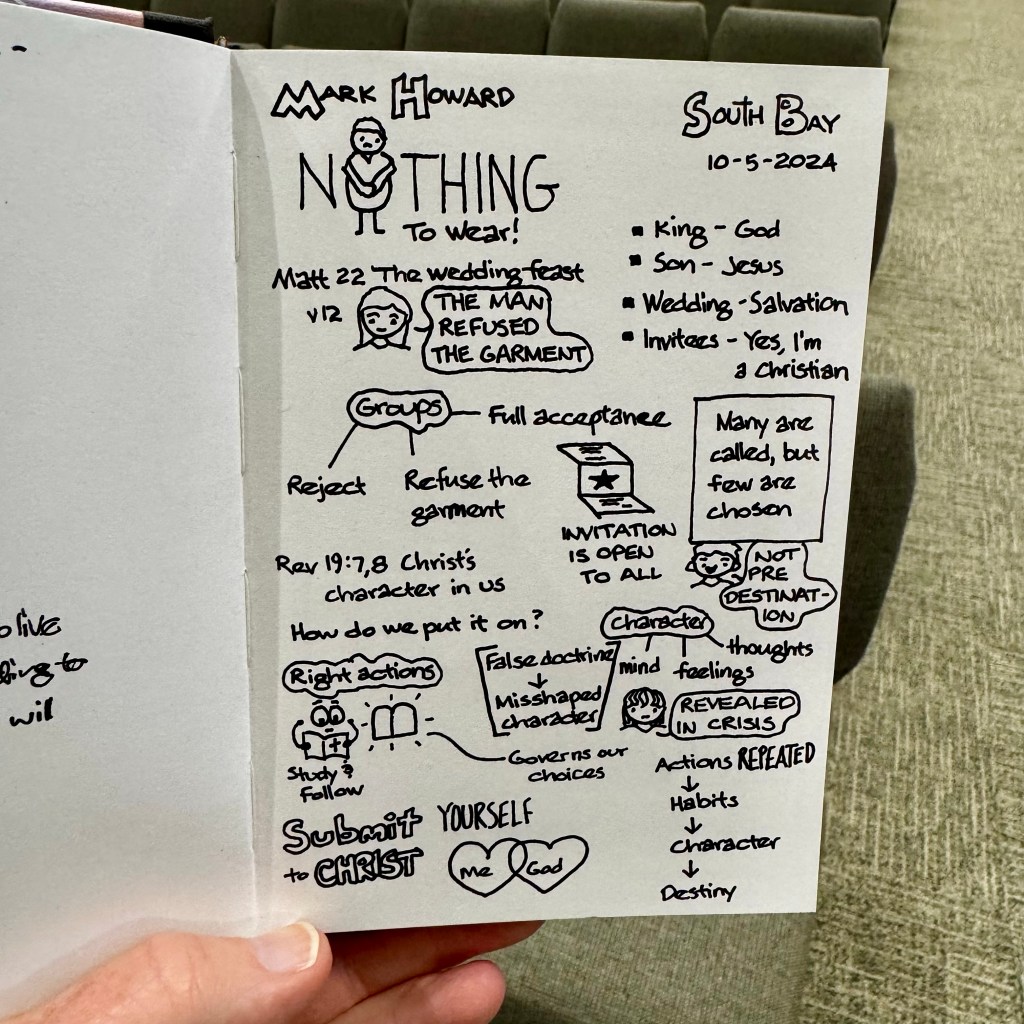 olive
to
will
MARK HOWARD
SOUTH BAY
10-5-2024
NOTHING
To wear!
Matt 22 The wedding feast
v12
THE MAN
REFUSED
THE GARMENT
King - God
Son - Jesus
Wedding - Salvation
Invitees - Yes, I'm
a Christian
Groups
Full acceptance
Reject
Refuse the
garment
INVITATION
IS OPEN
TO ALL
Many are
called, but
few are
chosen
NOT
PRE
DESTINAT-
ION
Rev 19:7,8 Christ's
character in us
How do we put it on?
Right actions
Study &
Follow
Governs our
choices
False doctrine
↓
Misshaped
character
character
mind
feelings
thoughts
REVEALED
IN CRISIS
Actions REPEATED
↓
Habits
↓
character
↓
Destiny
Submit YOURSELF
to CHRIST
Me
God